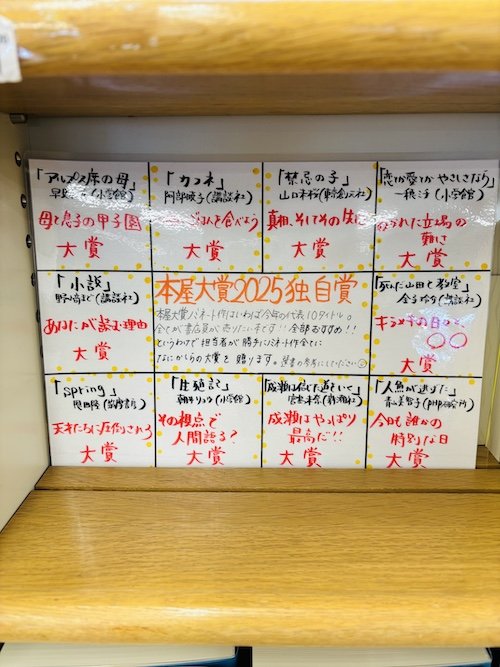 「アルプス席の母」
早見 (小学館)
母と息子の甲子園
大賞
「カフネ」
阿部暁子(講談社)
ごはんを食べよう
大賞
「禁忌の子」
山口未桜(東京創元社)
真相、そしてその先に
大賞
「恋とか愛とかやさしさなら」
一穂ミチ(小学館)
立場の
難さ
大賞
「小説」
野崎まど(講談社)
あなたが読む理由
大賞
本屋大賞2025独自賞
本屋大賞ノミネート作はいわば今年の代表10タイトル。
全てが書店員が売りたい本です!!全部おすすめ!!
というわけで担当者が勝手にノミネート作全てに
なにかしらの大賞を贈ります。選書の参考にしてください
「死んだ山田と教室」
金子玲介(講談社)
キラメキの日々と、
〇〇
大賞
「spring」
恩田陸(筑摩書房)
天才たちに圧倒されろ
大賞
「生殖記」
朝井リョウ(小学館)
その視点で
人間語る?
大賞
「成瀬は信じた道をいく」
宮島未奈(新潮社)
成瀬はやっぱり
最高だ!!
大賞
「人魚が逃げた」
青山美智子(PHP研究所)
今日も誰かの
特別な日
大賞